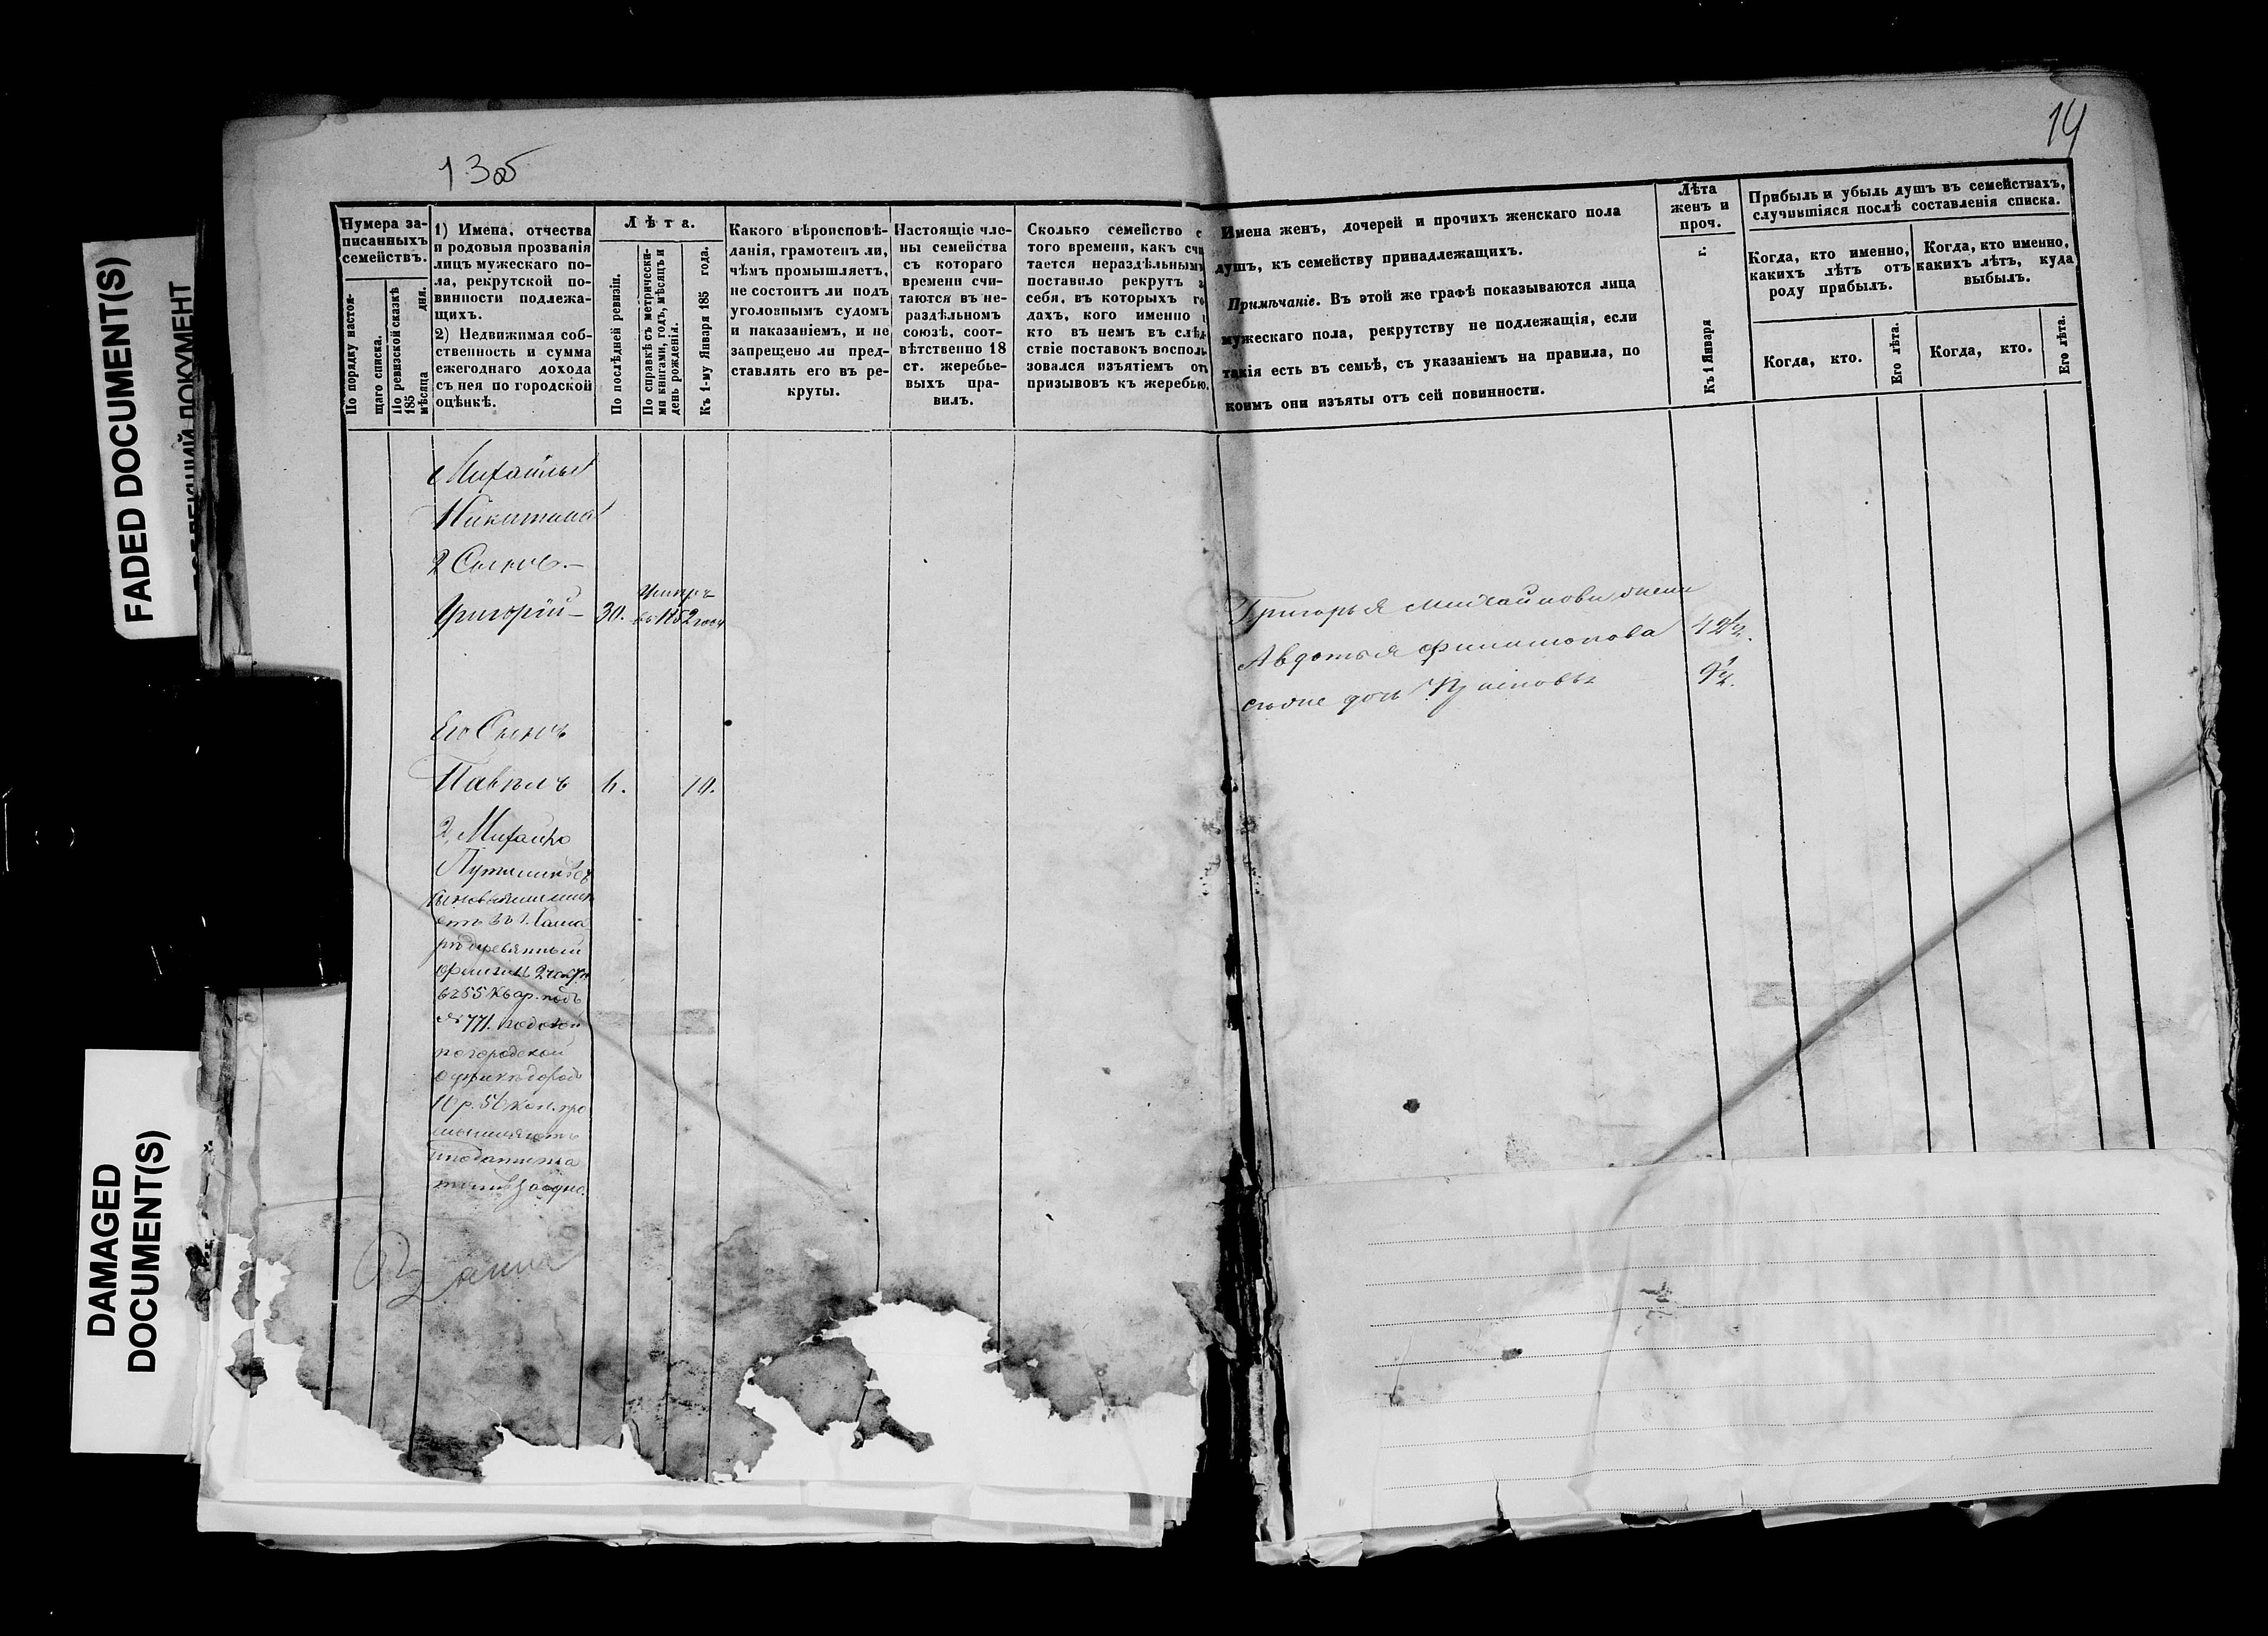 FADED DOCUMENT(S)
DAMAGED
DOCUMENT(S)
13об
14
Нумера за-
писанныхъ
семействъ.
По порядку настоя-
щаго списка.
По ревизской сказкѣ
185 дня.
мѣсяца
1) Имена, отчества
и родовыя прозванія
лицъ мужескаго по-
ла, рекрутской по-
винности подлежа-
щихъ.
2) Недвижимая соб-
ственность и сумма
ежегоднаго дохода
съ нея по городской
оцѣнкѣ.
Лѣта.
По послѣдней ревизіи.
По справкѣ съ метрически-
ми книгами, годъ, мѣсяцъ и
день рожденія.
Къ 1-му Января 185 года.
Какого вѣроисповѣ-
данія, грамотенъ ли,
чѣмъ промышляетъ,
не состоитъ ли подъ
уголовнымъ судомъ
и наказаніемъ, и не
запрещено ли пред-
ставлять его въ ре-
круты.
Настоящіе чле-
ны семейства
съ котораго
времени счи-
таются въ не-
раздѣльномъ
союзѣ, соот-
вѣтственно 18
ст. жеребье-
выхъ пра-
вилъ.
Сколько семейство с
того времени, какъ счи
тается нераздѣльнымъ
поставило рекрутъ з
себя, въ которыхъ го
дахъ, кого именно и
кто въ немъ въ слѣд
ствіе поставокъ восполь
зовался изъятіемъ отъ
призывовъ къ жеребью.
Имена женъ, дочерей и прочихъ женскаго пола
душъ, къ семейству принадлежащихъ.
Примѣчаніе. Въ этой же графѣ показываются лица
мужескаго пола, рекрутству не подлежащія, если
такія есть въ семьѣ, съ указаніемъ на правила, по
коимъ они изъяты отъ сей повинности.
Лѣта
женъ и
проч.
Къ 1 Января г.
Прибыль и убыль душъ въ семействахъ,
случившіяся послѣ составленія списка.
Когда, кто именно,
какихъ лѣтъ отъ
роду прибылъ.
Когда, кто именно,
какихъ лѣтъ, куда
выбылъ.
Когда, кто.
Его лѣта.
Когда, кто.
Его лѣта.
Михайлы
Никитина
2 Сынъ.-
Григорій- 30. умеръ
въ 1852 году
Его Сынъ
Павелъ 6. 10.
2, Михайло
въ г. Сама
рѣ деревянный
флигель 2 части
въ 55 квар. подъ
№ 771.
по городской
10 р. 56 коп. про
Григорья Михайлова жена
Авдотья Филимонова 42½.
9½.